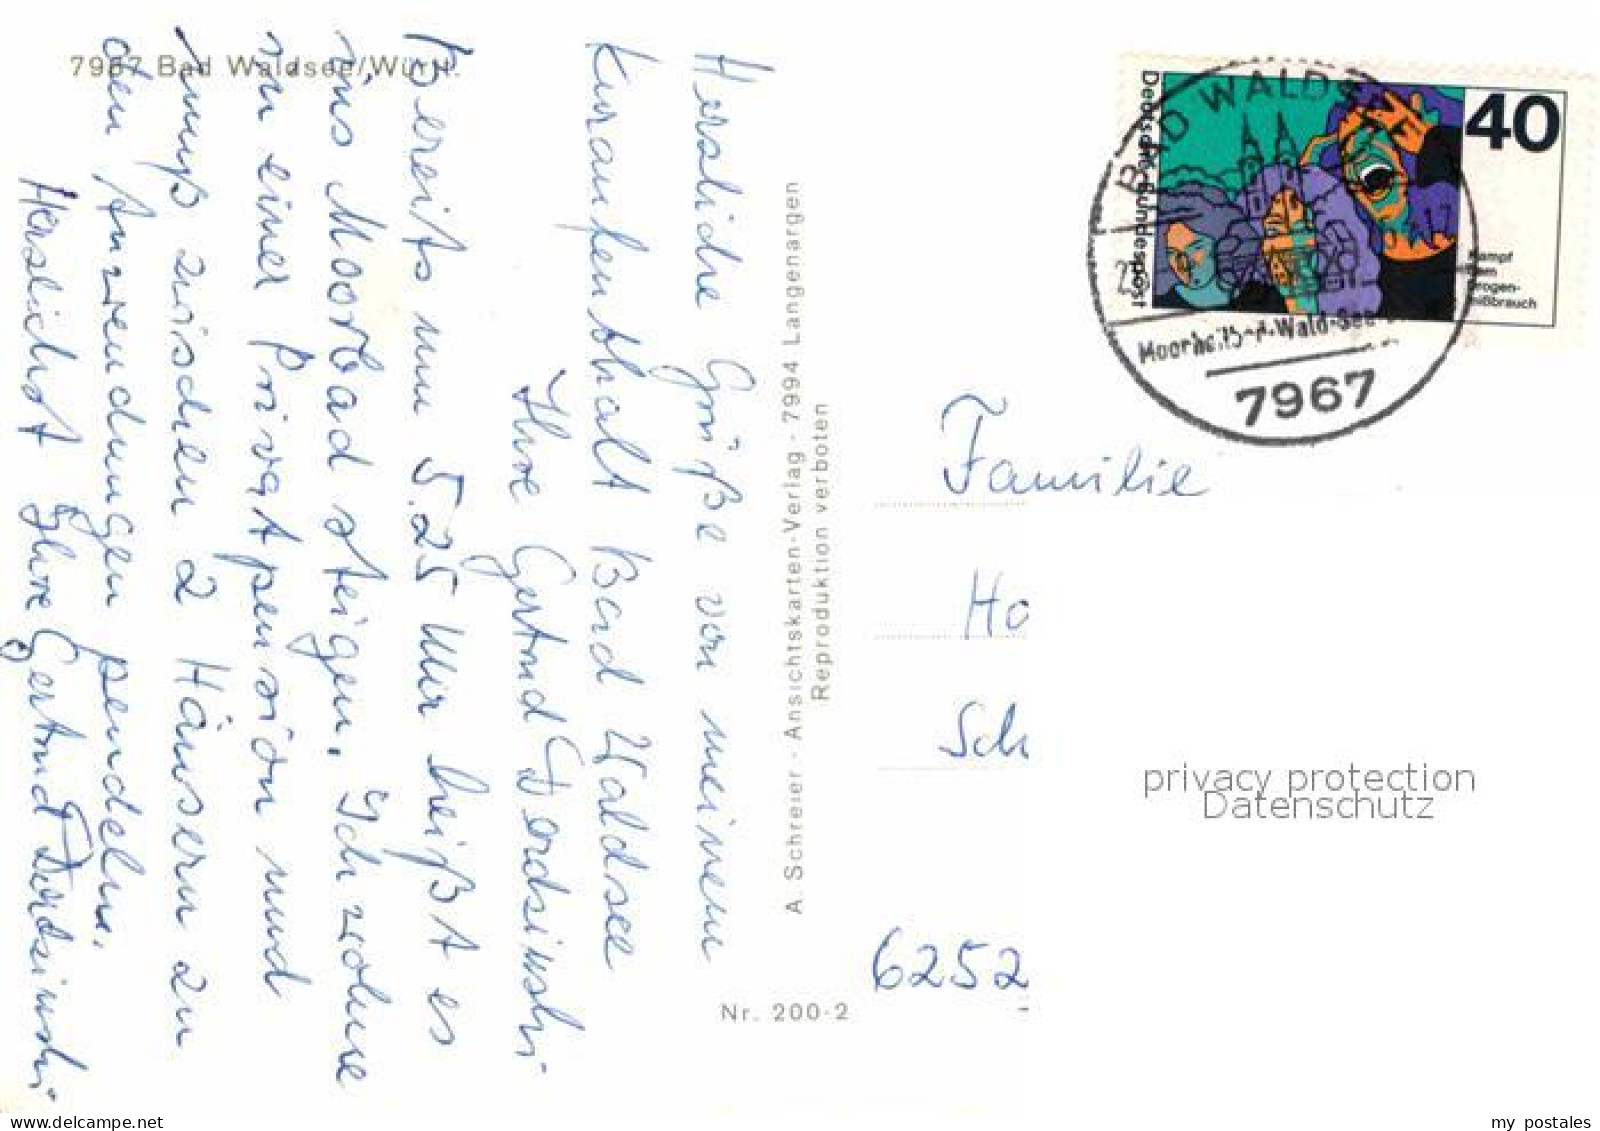 7967 Bad Waldsee/Württ.
Herzliche Grüße von meinem
Kuraufenthalt Bad Waldsee
Ihre Gertrud
Bereits um 5.25 Uhr heißt es
ins Moorbad steigen. Ich wohne
in einer Privatpension und
muß zwischen 2 Häusern zu
den Anwendungen pendeln.
Herzlichst Ihre Gertrud
A. Schreier - Ansichtskarten-Verlag - 7994 Langenargen
Reproduktion verboten
Nr. 200-2
Deutsche Bundespost
40
Kampf
dem
Drogen-
mißbrauch
BAD WALDSEE
7967
Familie
Ho
Sch
6252
privacy protection
Datenschutz
delcampe.net
my_postales